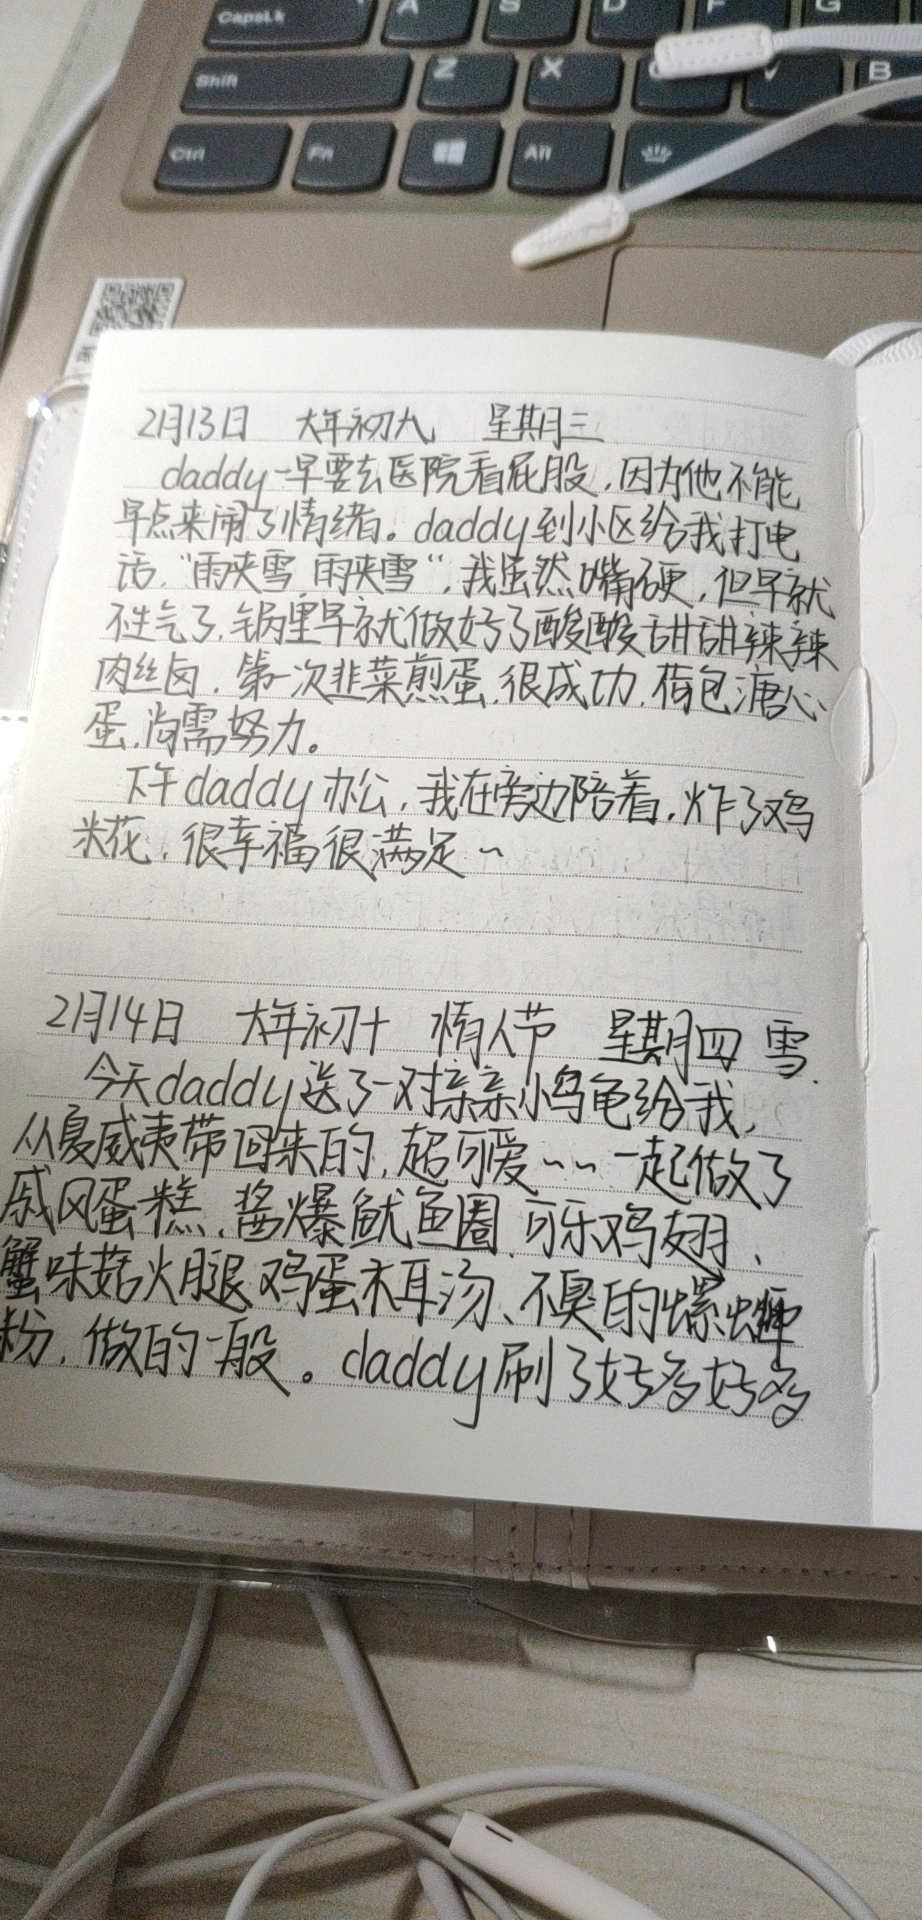 CapsLk A S D F G
Shift Z X C V B
Ctrl Fn Alt
2月13日 大年初九 星期三
daddy一早要去医院看屁股,因为他不能
早点来闹了情绪。daddy到小区给我打电
话,“雨夹雪,雨夹雪”,我虽然嘴硬,但早就
不生气了,锅里早就做好了酸酸甜甜辣辣
肉丝卤,第一次韭菜煎蛋,很成功,荷包溏心
蛋,尚需努力。
下午daddy办公,我在旁边陪着,炸了鸡
米花,很幸福很满足~
2月14日 大年初十 情人节 星期四 雪.
今天daddy送了一对亲亲小乌龟给我,
从夏威夷带回来的,超可爱~~一起做了
戚风蛋糕,酱爆鱿鱼圈、可乐鸡翅、
蟹味菇火腿鸡蛋木耳汤、不臭的螺蛳
粉,做的一般。daddy刷了好多好多